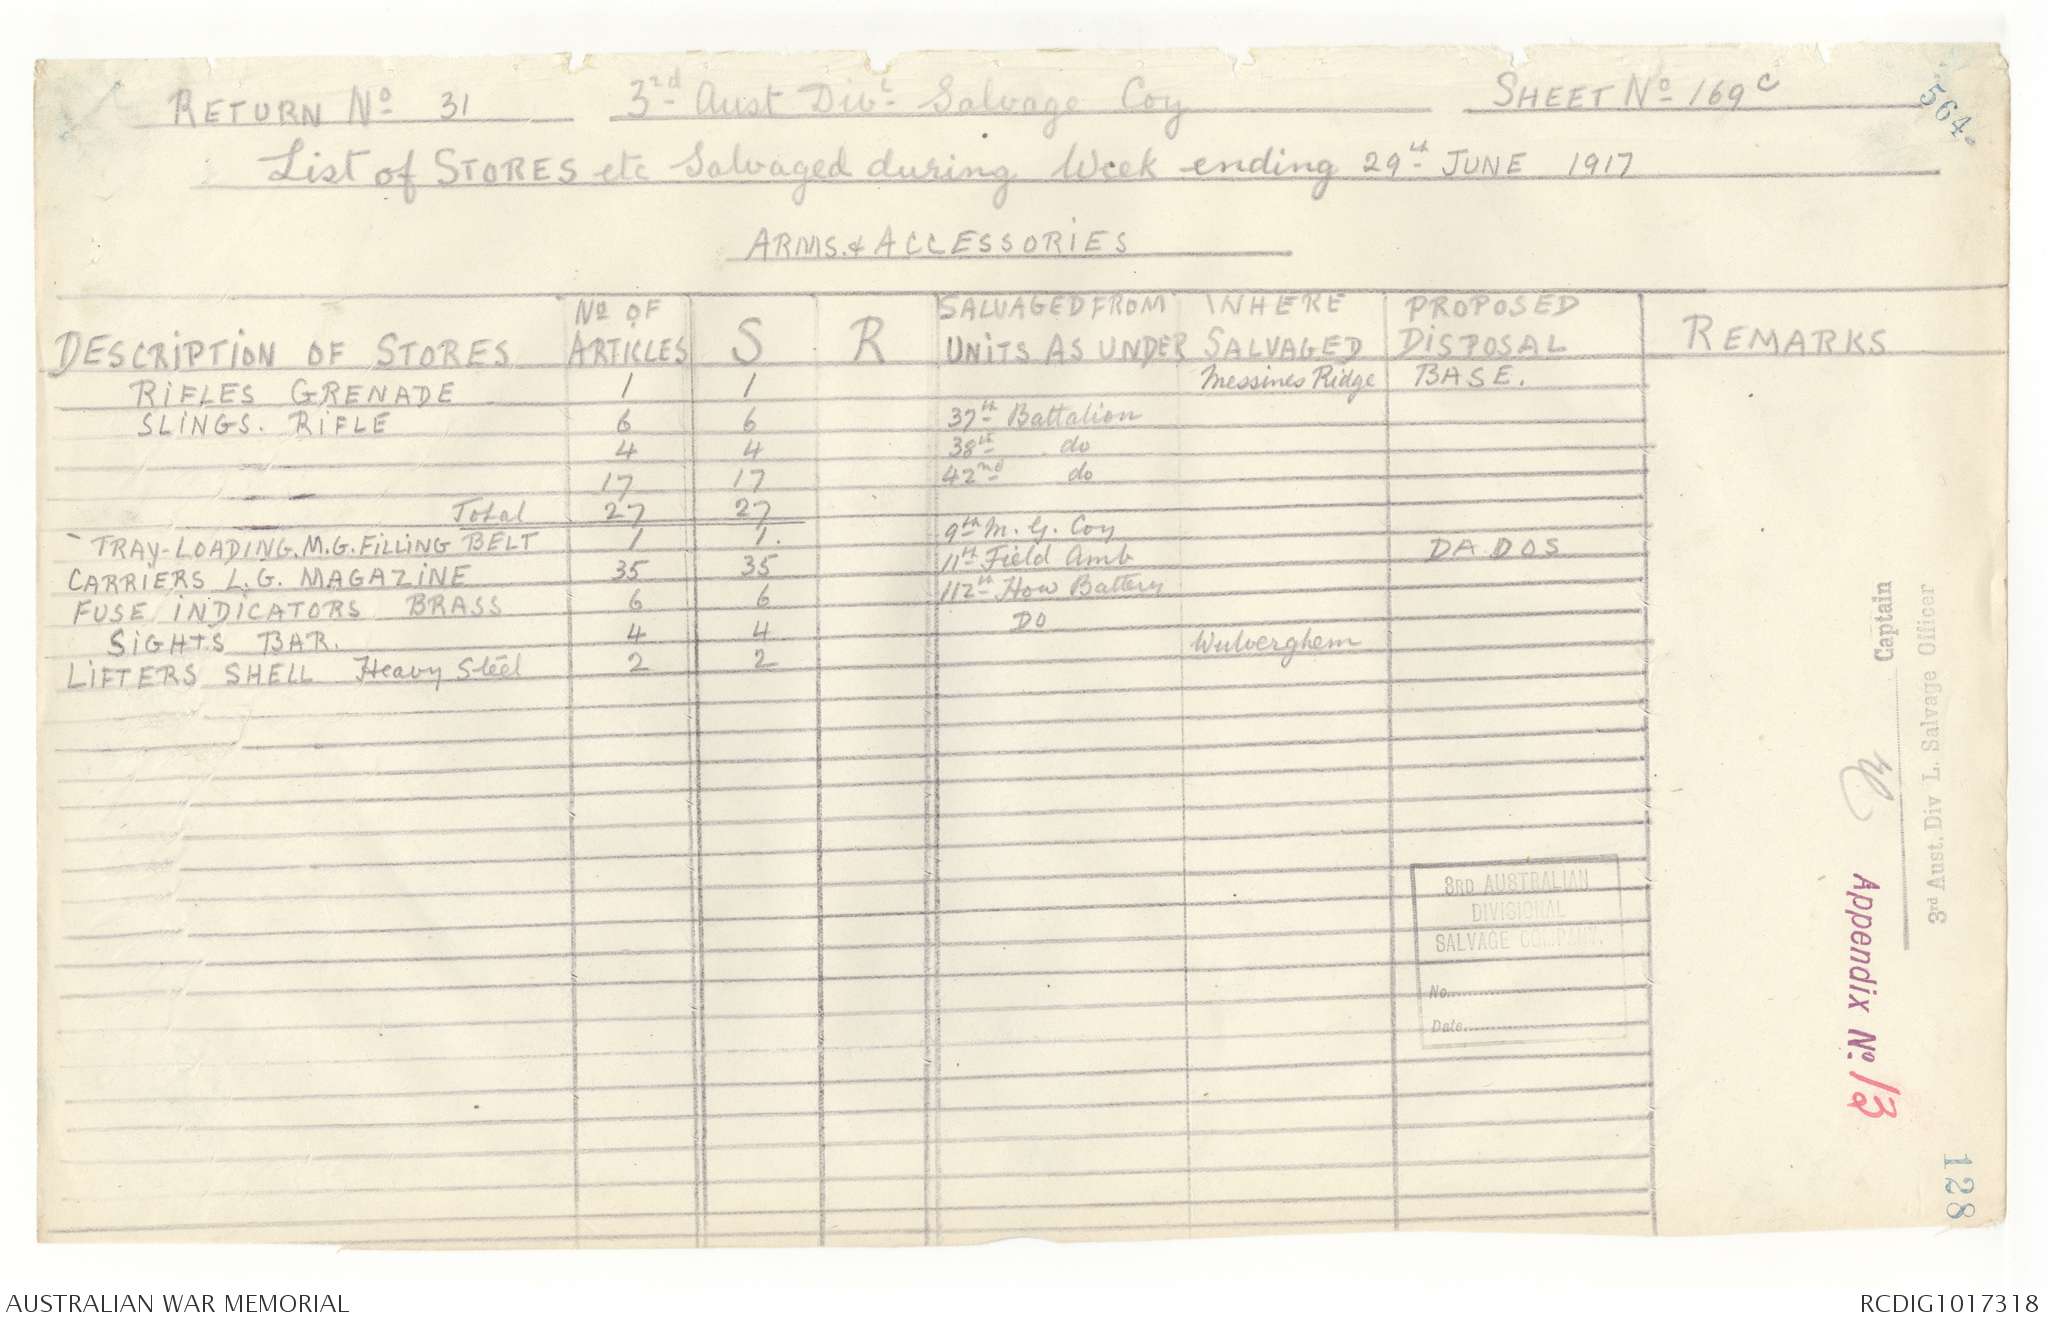 RETURN No 31 3rd Aust Divl Salvage Coy SHEET No 169c
564.
List of STORES etc Salvaged during Week ending 29th JUNE 1917
ARMS. & ACCESSORIES
DESCRIPTION OF STORES No OF ARTICLES S R SALVAGED FROM UNITS AS UNDER WHERE SALVAGED PROPOSED DISPOSAL REMARKS
RIFLES GRENADE 1 1 Messines Ridge BASE.
SLINGS. RIFLE 6 6 37th Battalion
4 4 38th do
17 17 42nd do
Total 27 27
TRAY-LOADING. M.G. FILLING BELT 1 1. 9th M. G. Coy DA. DOS
CARRIERS L.G. MAGAZINE 35 35 11th Field Amb
FUSE INDICATORS BRASS 6 6 112th How Battery
SIGHTS BAR. 4 4 DO
LIFTERS SHELL Heavy Steel 2 2 Wulverghem
3RD AUSTRALIAN
DIVISIONAL
SALVAGE COMPANY.
No.
Date
Captain
3rd Aust. Div L. Salvage Officer
Appendix No. 13
128
AUSTRALIAN WAR MEMORIAL RCDIG1017318